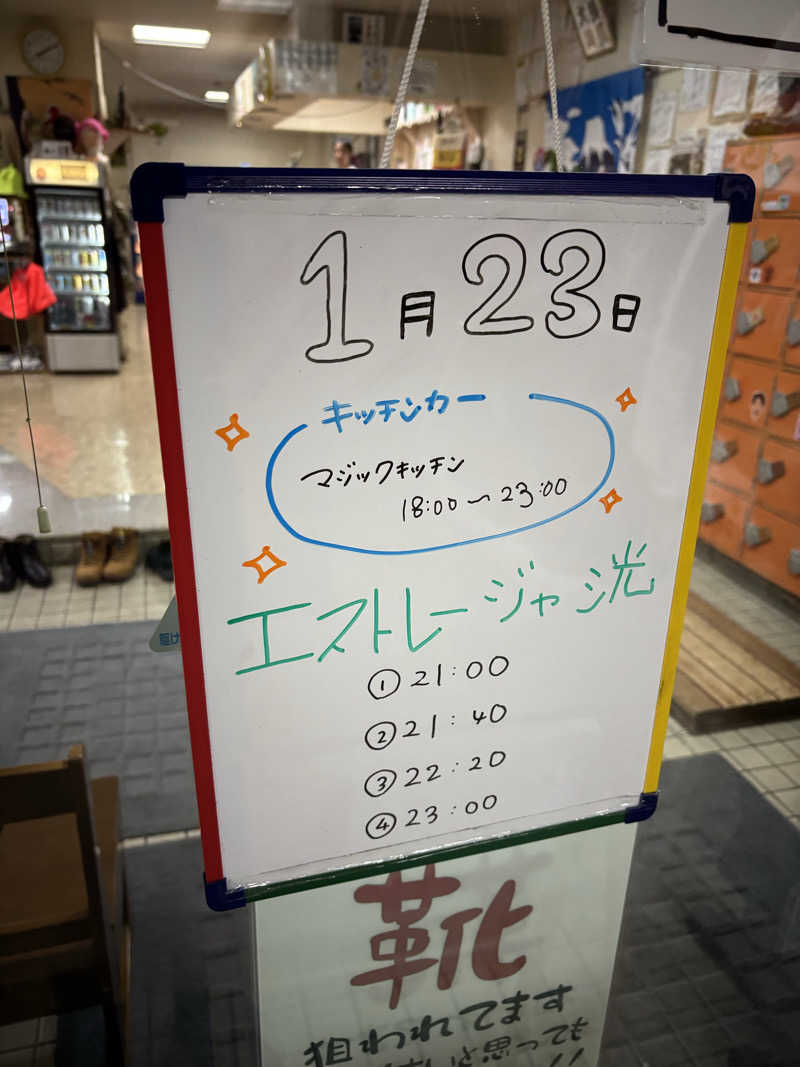 1月23日
キッチンカー
マジックキッチン
18:00〜23:00
エストレージャシ光
① 21:00
② 21:40
③ 22:20
④ 23:00
靴
狙われてます
と思っても